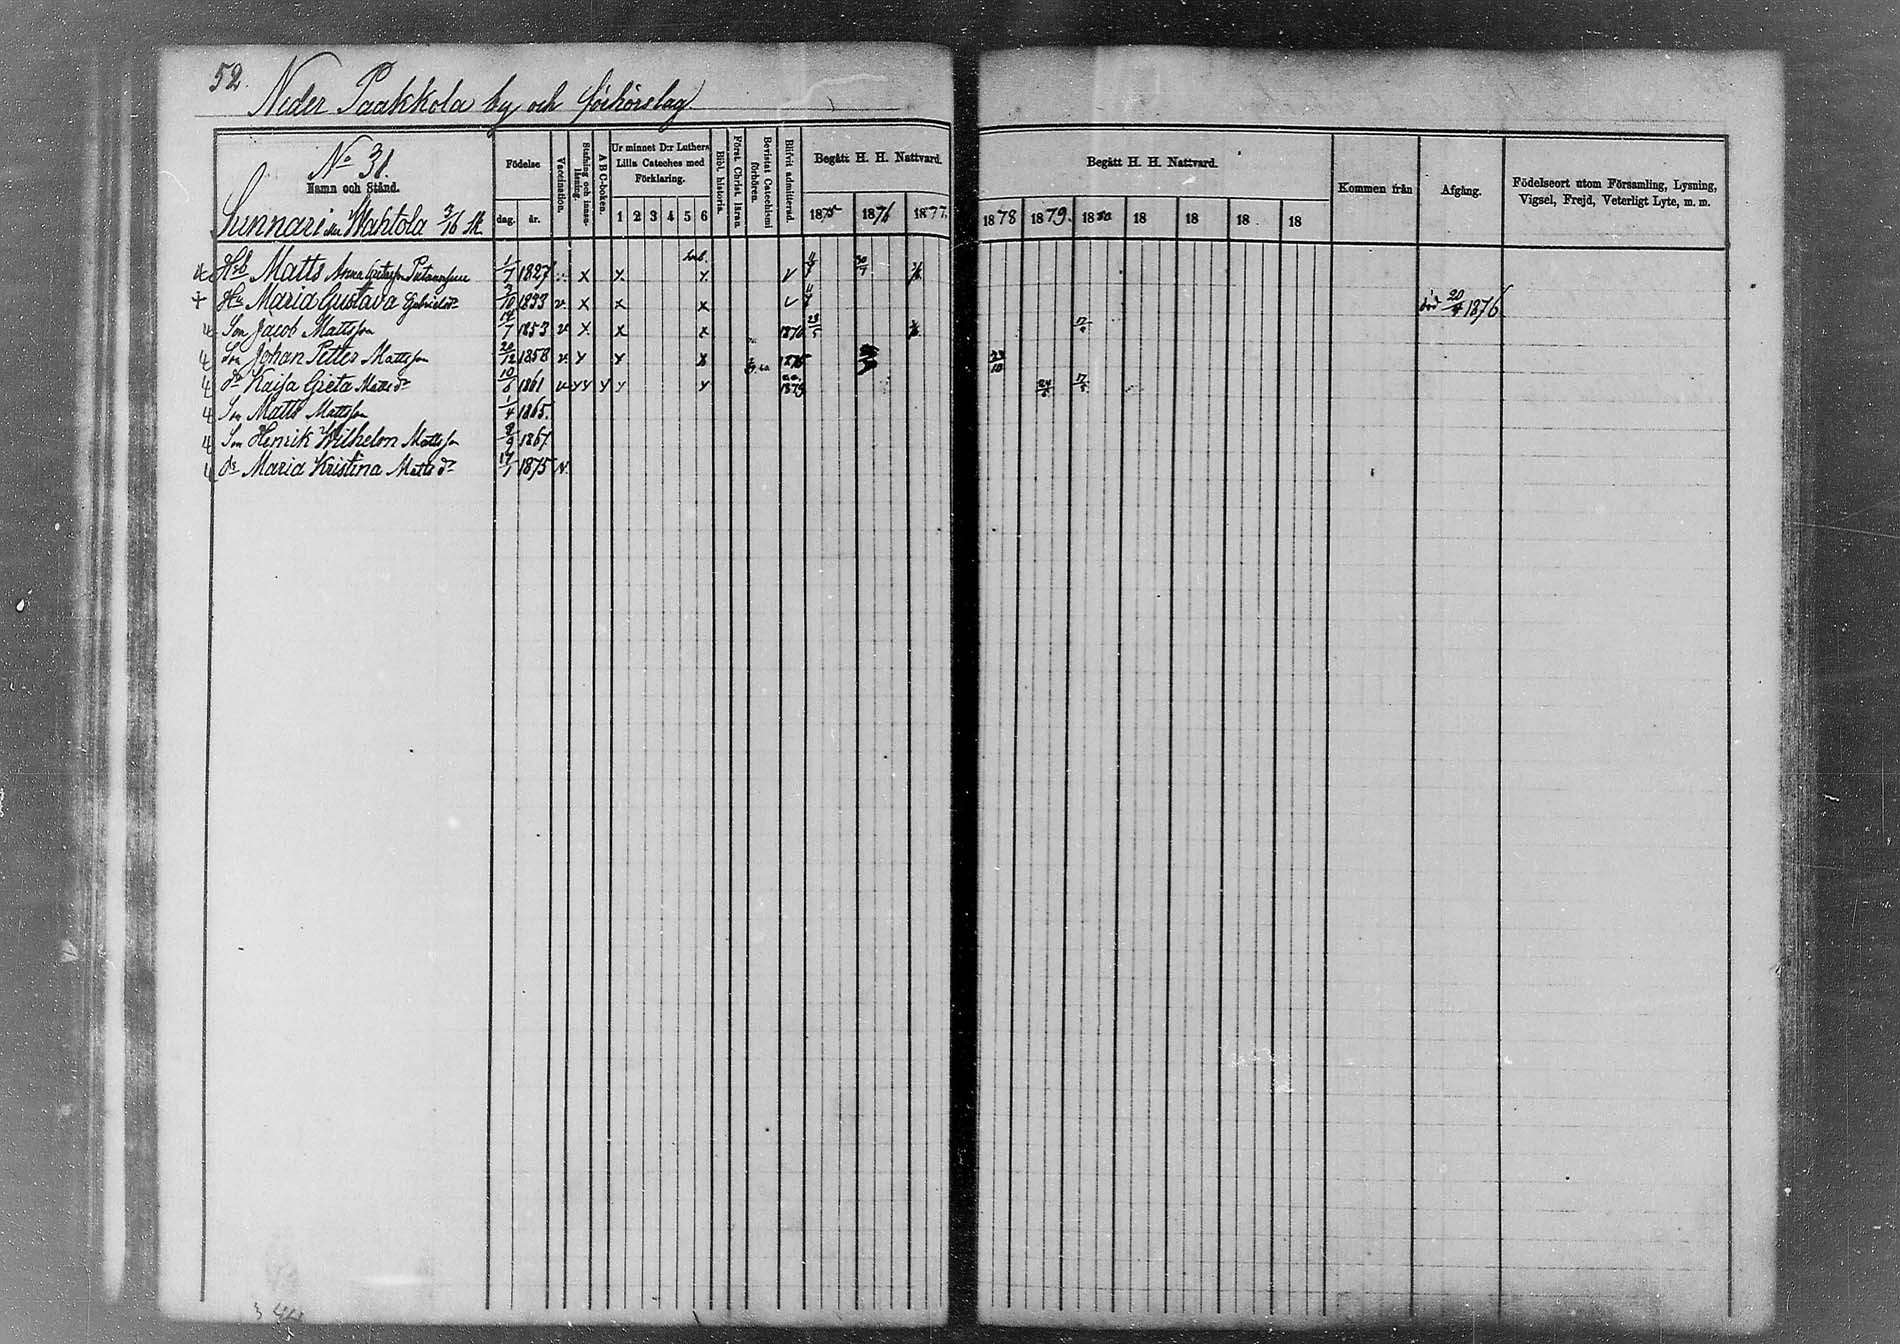 52.
Neder Paakkola by och förhörelag
No 31.
Namn och Stånd.
Sunnari eller Wahtola 3/16 Sk
Födelse
dag. år.
Vaccination.
Stafning och innanläsning.
ABC-boken.
Ur minnet D:r Luthers Lilla Cateches med Förklaring.
1 2 3 4 5 6
Bibl. historia.
Först. Christ. läran
Bevistat Catechismi förhören.
Blifvit admitterad.
Begått H. H. Nattvard.
1875 1876 1877.
Begått H. H. Nattvard.
1878 1879. 1880 18 18 18 18
Kommen från
Afgång.
Födelseort utom Församling, Lysning, Vigsel, Frejd, Veterligt Lyte, m. m.
Hsb Matts 1/7 1827 x x x v 30/7
+ Hu Maria Gustava Gabrielsdr 3/10 1833 v x x x v död 20/4 1876
Son Jacob Mattsson 14/7 1853 v x x x 1870 17
Son Johan Petter Mattsson 20/12 1858 v x x x 1875 23/10
dr Kaisa Greta Mattsdr 10/6 1861 v x x x x x 1879 24/5 17/5
Son Matts Mattsson 1/4 1865.
Son Henrik Wilhelm Mattsson 8/9 1867
dr Maria Kristina Mattsdr 17/1 1875 v.